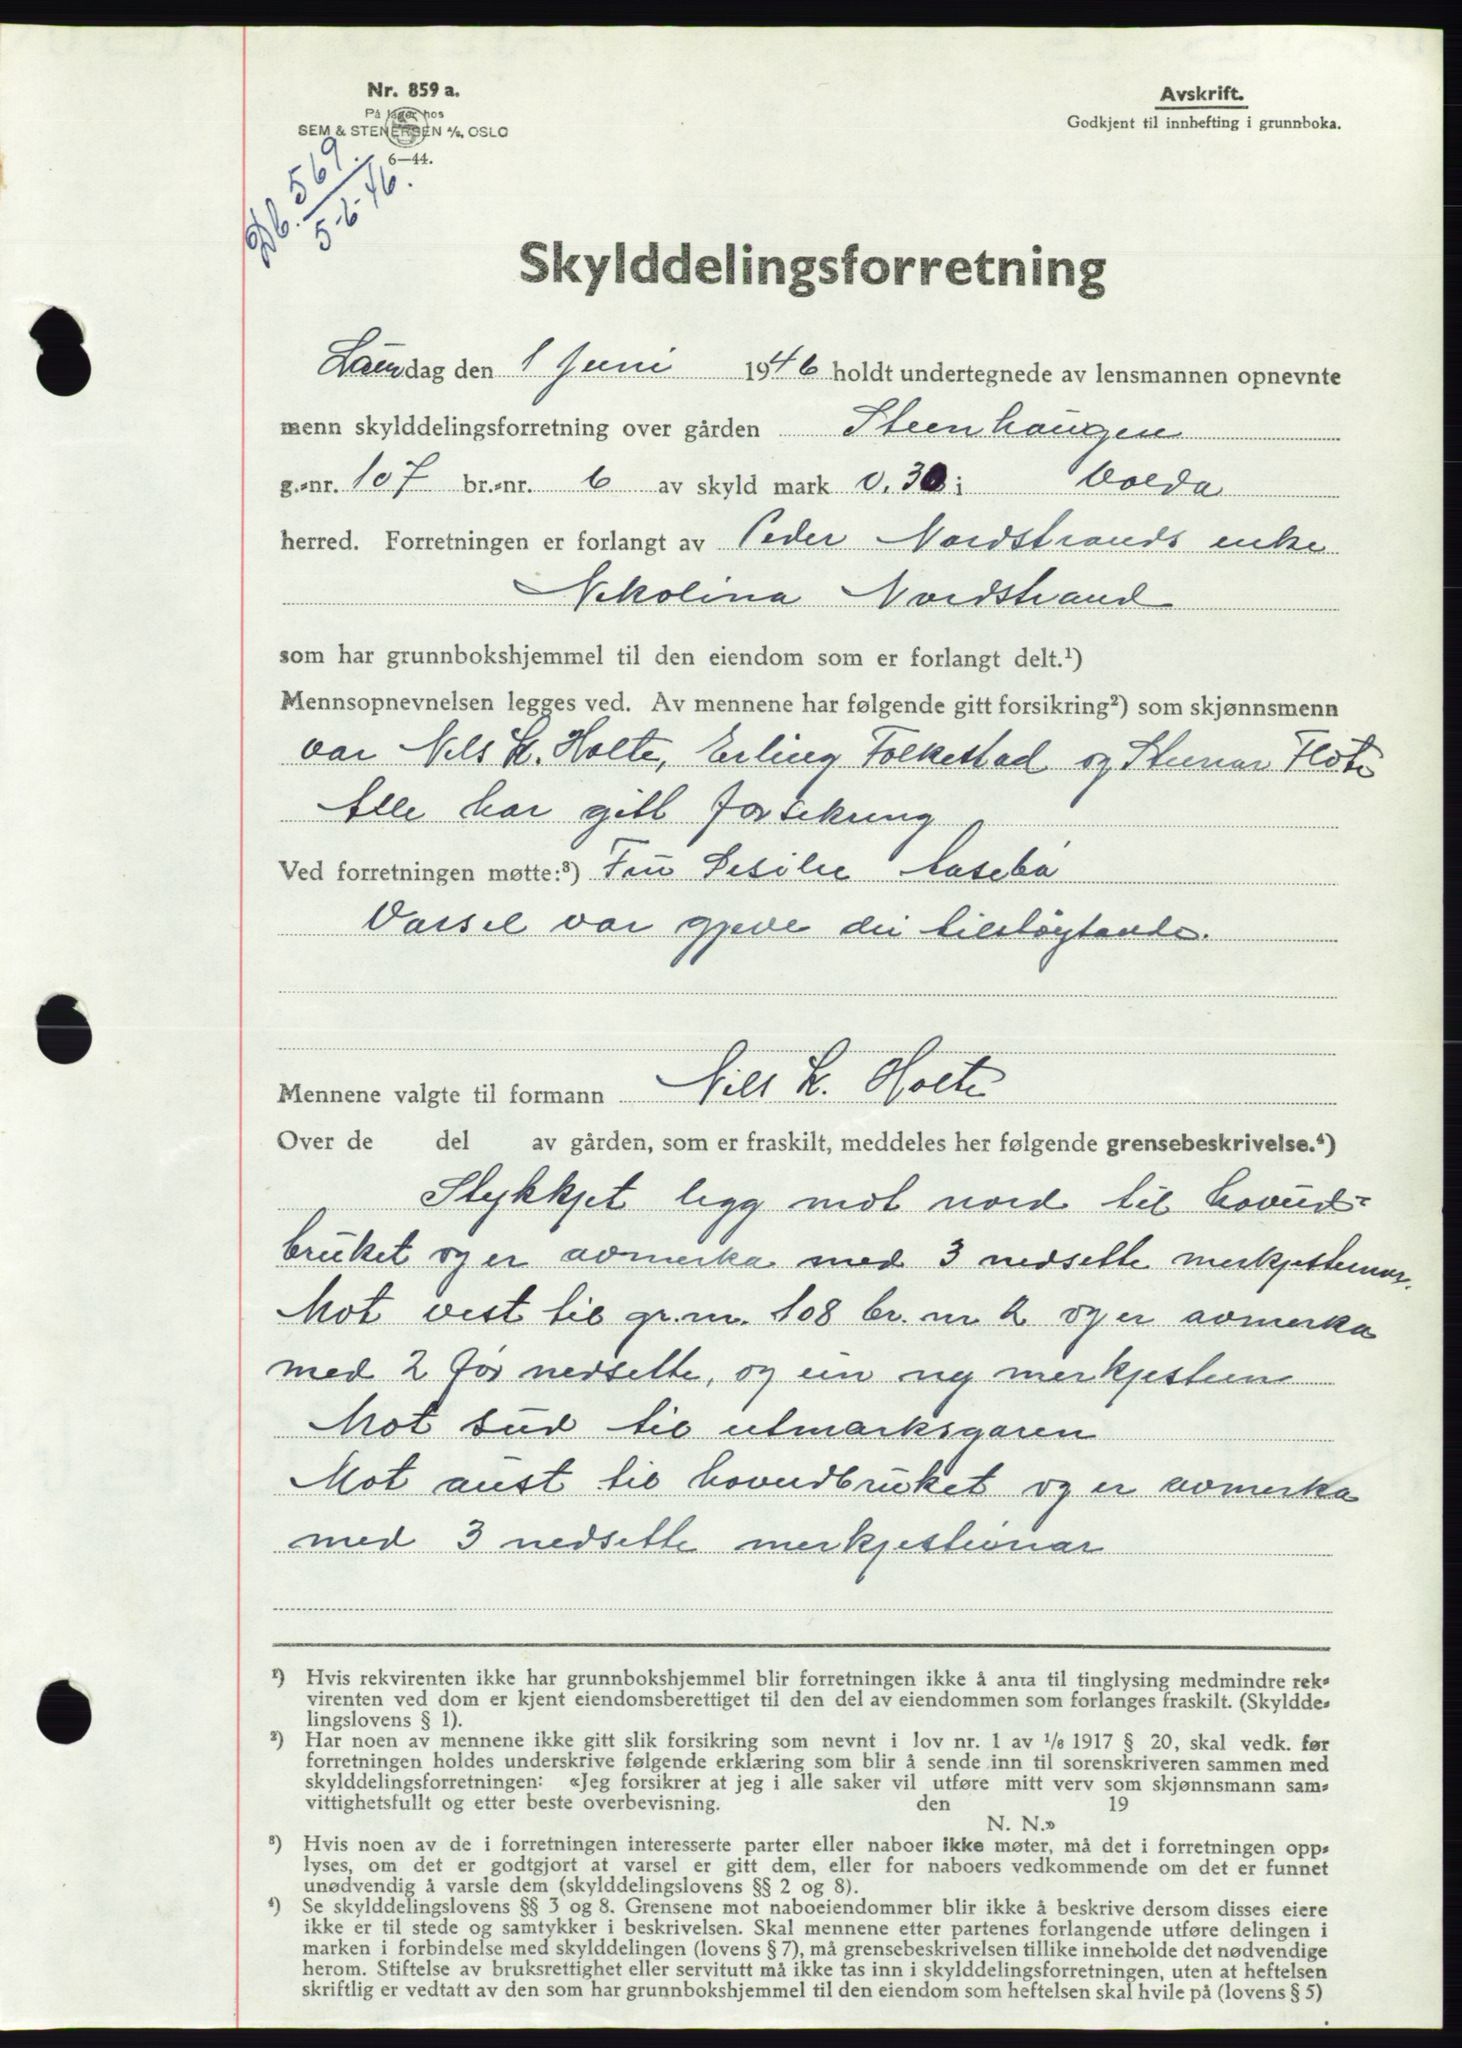 Nr. 859 a.
På lager hos
SEM & STENERSEN A/S, OSLO
6—44.
Avskrift.
Godkjent til innhefting i grunnboka.
Db. 569.
5-6-46.
Skylddelingsforretning
Laurdag den 1 Juni 1946 holdt undertegnede av lensmannen opnevnte
menn skylddelingsforretning over gården Steenhaugen
g.-nr. 107 br.-nr. 6 av skyld mark 0.30 i Volda
herred. Forretningen er forlangt av Peder Nordstrands enke
Nikolina Nordstrand
som har grunnbokshjemmel til den eiendom som er forlangt delt.¹)
Mennsopnevnelsen legges ved. Av mennene har følgende gitt forsikring²) som skjønnsmenn
var Nils K. Holte, Erling Folkestad og Steinar Fløte
Alle har gitt forsikring
Ved forretningen møtte:³) Fru Aasebø
Varsel var gjeve dei tilstøytande.
Mennene valgte til formann Nils K. Holte
Over de del av gården, som er fraskilt, meddeles her følgende grensebeskrivelse.⁴)
Stykkjet ligg mot nord til hovud-
bruket og er avmerka med 3 nedsette merkjesteinar.
Mot vest til gr.nr. 108 br. nr 2 og er avmerka
med 2 før nedsette, og ein ny merkjestein
Mot sud til utmarksgaren
Mot aust til hovudbruket og er avmerka
med 3 nedsette merkjesteinar
¹) Hvis rekvirenten ikke har grunnbokshjemmel blir forretningen ikke å anta til tinglysing medmindre rek-
virenten ved dom er kjent eiendomsberettiget til den del av eiendommen som forlanges fraskilt. (Skyldde-
lingslovens § 1).
²) Har noen av mennene ikke gitt slik forsikring som nevnt i lov nr. 1 av 1/6 1917 § 20, skal vedk. før
forretningen holdes underskrive følgende erklæring som blir å sende inn til sorenskriveren sammen med
skylddelingsforretningen: «Jeg forsikrer at jeg i alle saker vil utføre mitt verv som skjønnsmann sam-
vittighetsfullt og etter beste overbevisning. den 19
N. N.»
³) Hvis noen av de i forretningen interesserte parter eller naboer ikke møter, må det i forretningen opp-
lyses, om det er godtgjort at varsel er gitt dem, eller for naboers vedkommende om det er funnet
unødvendig å varsle dem (skylddelingslovens §§ 2 og 8).
⁴) Se skylddelingslovens §§ 3 og 8. Grensene mot naboeiendommer blir ikke å beskrive dersom disses eiere
ikke er til stede og samtykker i beskrivelsen. Skal mennene etter partenes forlangende utføre delingen i
marken i forbindelse med skylddelingen (lovens § 7), må grensebeskrivelsen tillike inneholde det nødvendige
herom. Stiftelse av bruksrettighet eller servitutt må ikke tas inn i skylddelingsforretningen, uten at heftelsen
skriftlig er vedtatt av den som har grunnbokshjemmel til den eiendom som heftelsen skal hvile på (lovens § 5)